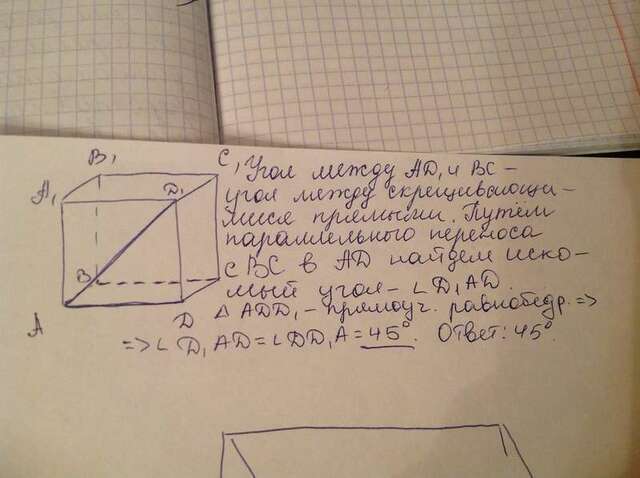 B₁
C₁
A₁
D₁
B
C
A
D
Угол между AD₁ и BC –
угол между скрещивающи-
мися прямыми. Путём
параллельного переноса
BC в AD найдем иско-
мый угол – ∠D₁AD.
△ADD₁ – прямоуг. равнобедр. =>
=> ∠D₁AD = ∠DD₁A = 45°. Ответ: 45°.